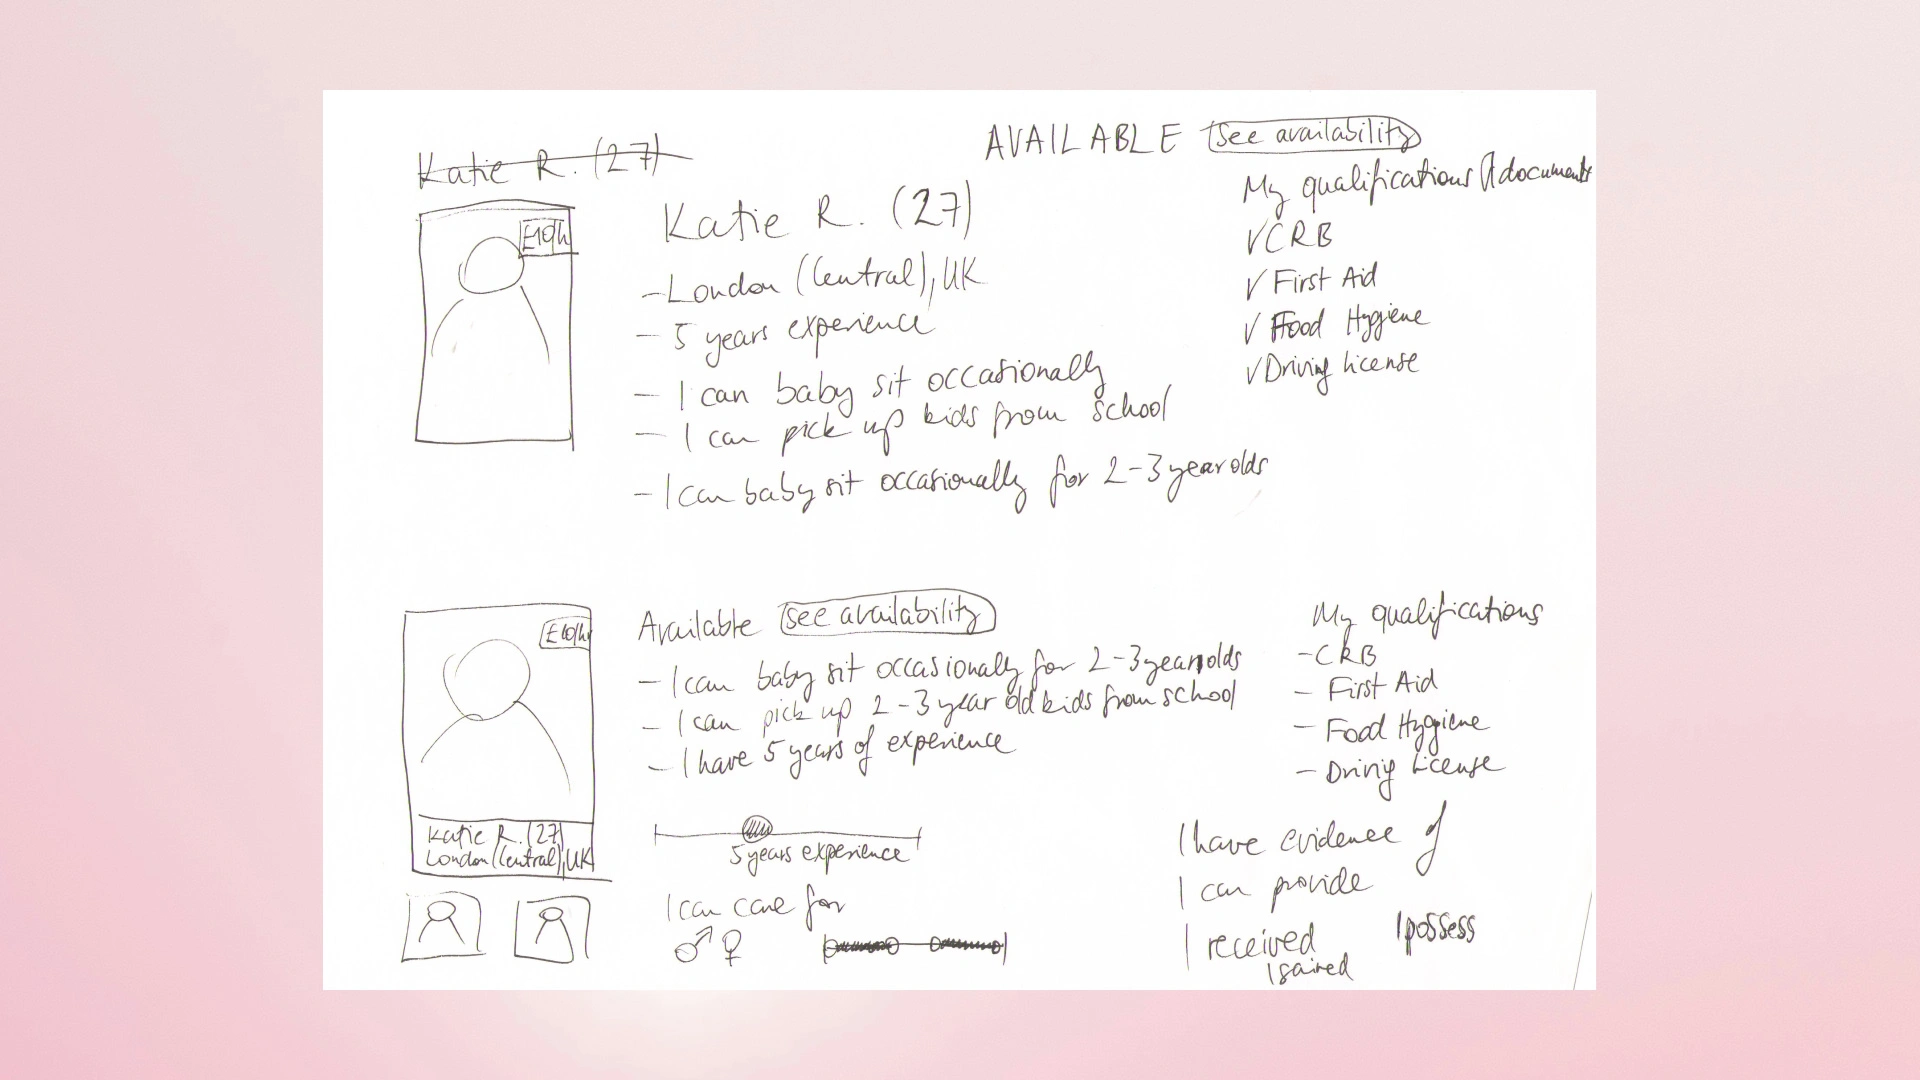 Katie R. (27)
AVAILABLE see availability
£10/h
Katie R. (27)
- London (Central), UK
- 5 years experience
- I can baby sit occasionally
- I can pick up kids from school
- I can baby sit occasionally for 2-3 year olds
My qualifications / documents
✓ CRB
✓ First Aid
✓ Food Hygiene
✓ Driving license
£10/h
Katie R. (27)
London (Central), UK
Available see availability
- I can baby sit occasionally for 2-3 year olds
- I can pick up 2-3 year old kids from school
- I have 5 years of experience
5 years experience
I can care for
♂ ♀
My qualifications
- CRB
- First Aid
- Food Hygiene
- Driving License
I have evidence of
I can provide
I received
I possess
I gained